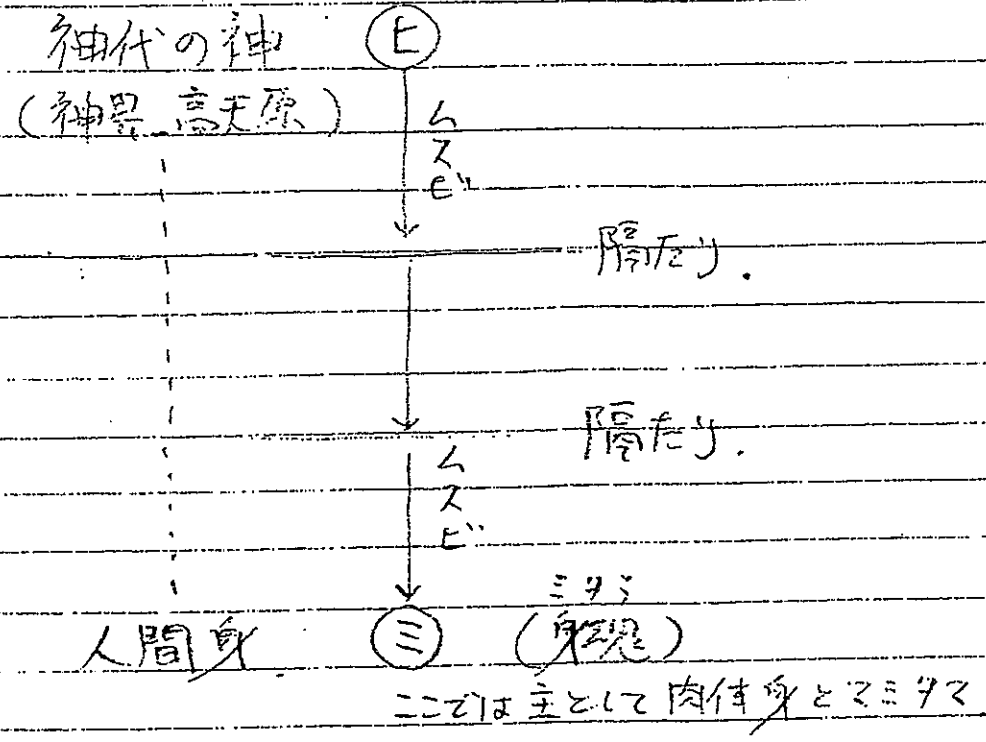 神代の神 ヒ
(神界 高天原)
ムスビ
隔たり.
隔たり.
ムスビ
ミタミ
人間身 ミ (身魂)
ここでは主として肉体身とマミタマ